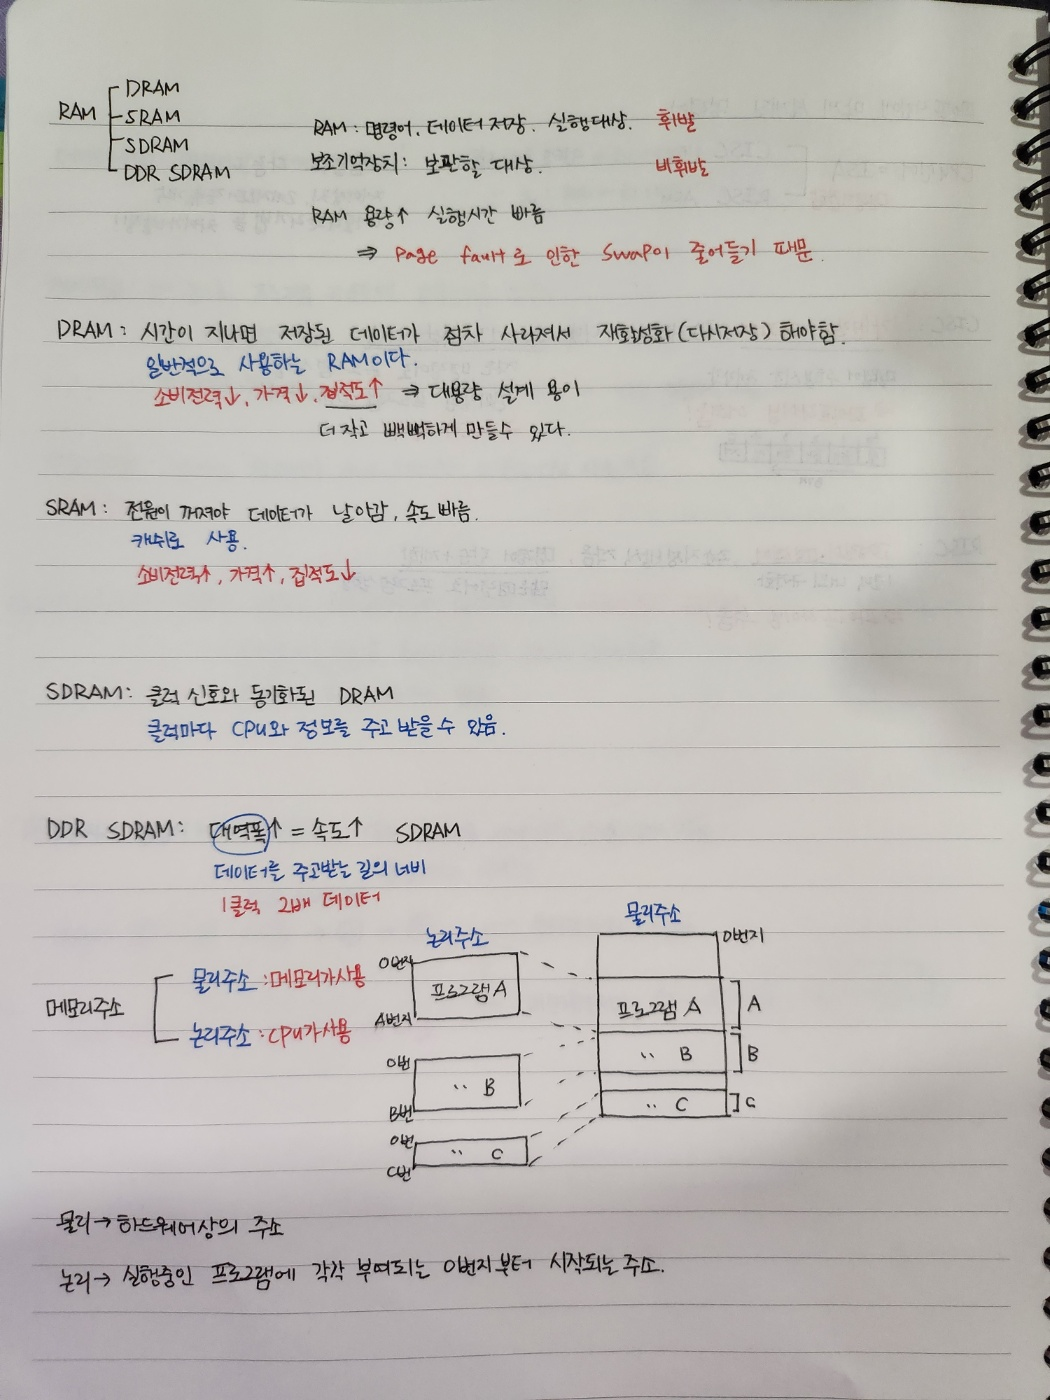 RAM
DRAM
SRAM
SDRAM
DDR SDRAM
RAM : 명령어, 데이터 저장. 실행대상. 휘발
보조기억장치 : 보관할 대상. 비휘발
RAM 용량↑ 실행시간 빠름
⇒ Page fault로 인한 Swap이 줄어들기 때문.
DRAM : 시간이 지나면 저장된 데이터가 점차 사라져서 재활성화(다시저장) 해야함.
일반적으로 사용하는 RAM이다.
소비전력↓, 가격↓, 집적도↑ ⇒ 대용량 설계 용이
더 작고 빽빽하게 만들수 있다.
SRAM : 전원이 꺼져야 데이터가 날아감, 속도 빠름.
캐쉬로 사용.
소비전력↑, 가격↑, 집적도↓
SDRAM : 클럭 신호와 동기화된 DRAM
클럭마다 CPU와 정보를 주고 받을 수 있음.
DDR SDRAM : 대역폭↑ = 속도↑ SDRAM
데이터를 주고받는 길의 너비
1클럭 2배 데이터
메모리주소
물리주소 : 메모리가 사용
논리주소 : CPU가 사용
논리주소
0번지
프로그램 A
A번지
0번
〃 B
B번
0번
〃 C
C번
물리주소
0번지
프로그램 A
A
〃 B
B
〃 C
C
물리 → 하드웨어상의 주소
논리 → 실행중인 프로그램에 각각 부여되는 0번지부터 시작되는 주소.